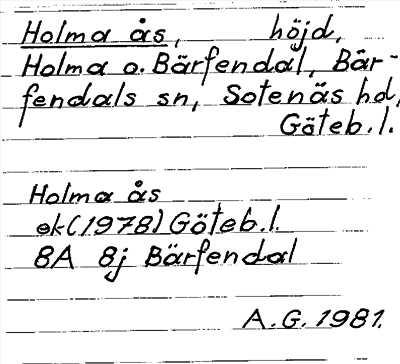 Holma ås, höjd,
Holma o. Bärfendal, Bär-
fendals sn, Sotenäs hd,
Göteb. l.
Holma ås
ek (1978) Göteb. l.
8A 8j Bärfendal
A. G. 1981.